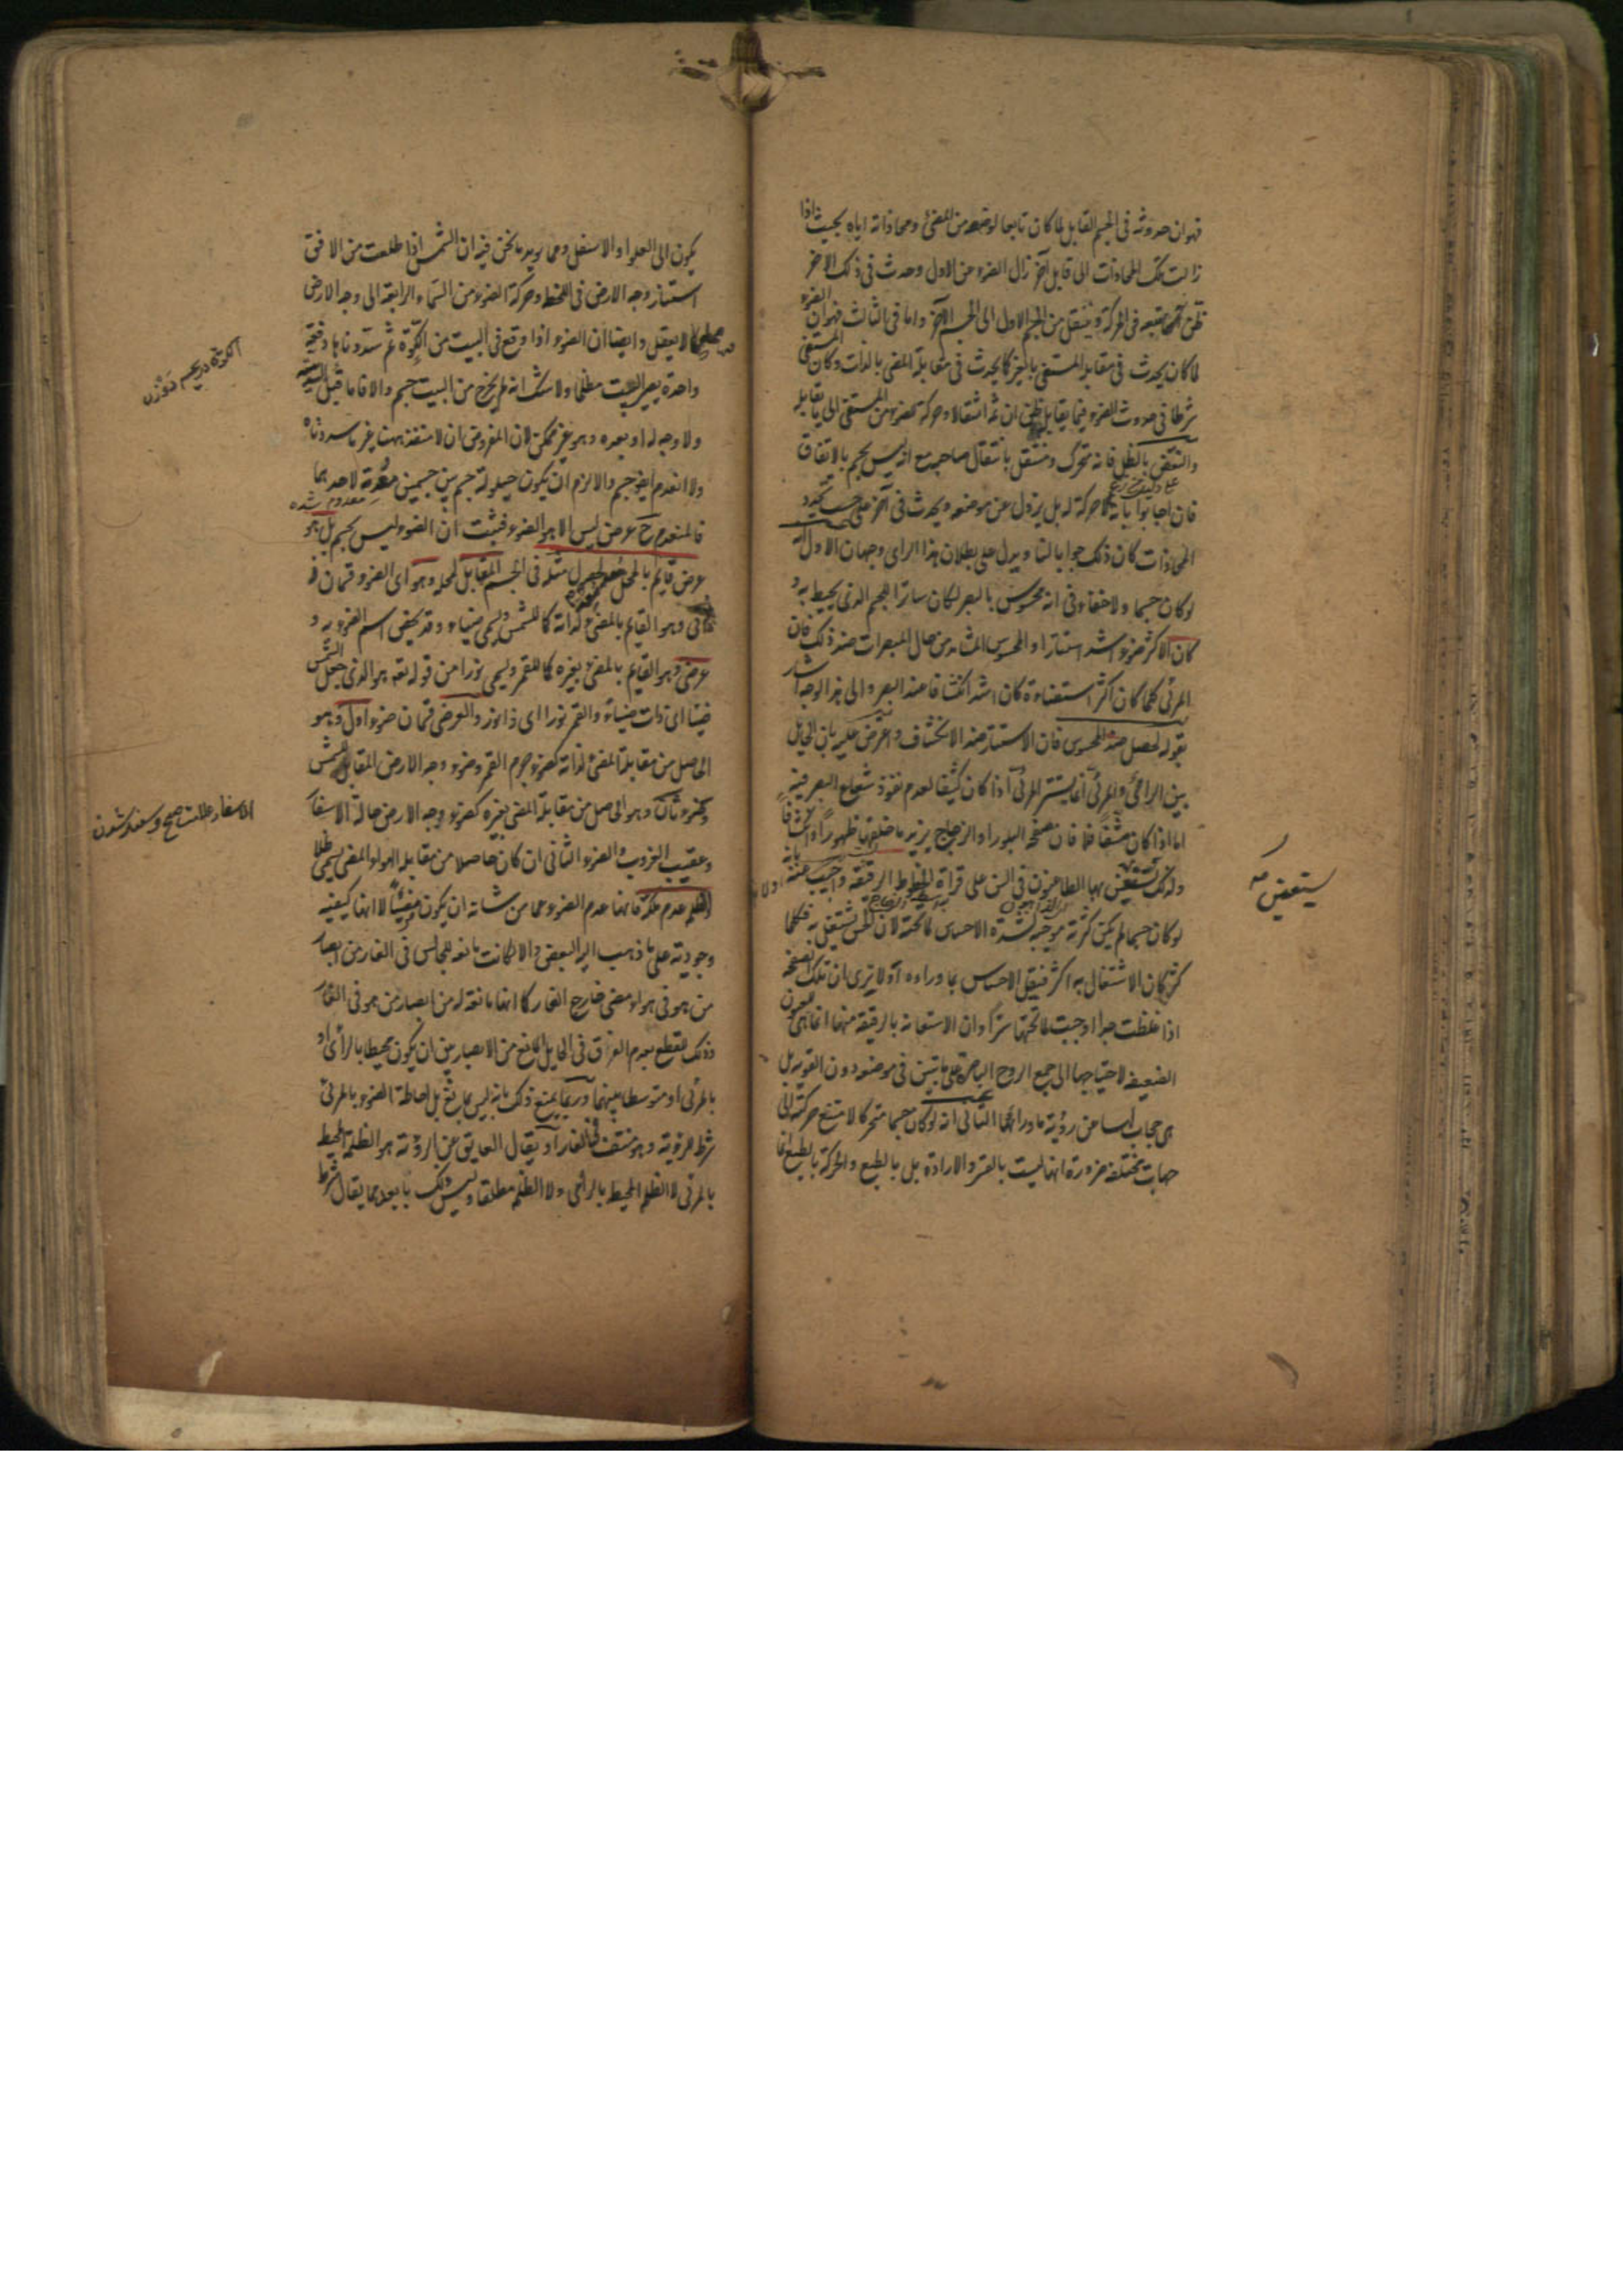 فهوان حدوثه فى الجسم القابل لما كان تابعا لوضعه من المضئ ومحاذاته اياه بحيث اذا
زالت تلك المحاذات الى قابل آخر زال الضوء عن الاول وحدث فى ذلك الاخر
ظن انه يتبعه فى الحركة وينتقل من الجسم الاول الى الجسم الآخر واما فى الثالث فهوان الضوء
لما كان يحدث فى مقابلة المستضئ بالغير كما يحدث فى مقابلة المضئ بالذات وكان المستضئ
شرطا فى حدوث الضوء فيما يقابله ظن ان ثمه انتقالا وحركة للضوء من المستضئ الى ما يقابله
والنقض بالظل فانه متحرك ومنتقل بانتقال صاحبه مع انه ليس بجسم بالاتفاق
فان اجابوا بانه لا حركة له بل يزول عن موضعه ويحدث فى آخر على حسب تجدد
المحاذات كان ذلك جوابا لنا ويدل على بطلان هذا الراى وجهان الاول انه
لو كان جسما ولا خفاء فى انه محسوس بالبصر لكان ساترا للجسم الذى يحيط به و
كان الاكثر ضوءا اشد استتارا والمحسوس المشاهد من حال المبصرات ضد ذلك فان
المرئى كلما كان اكثر استضاءة كان اشد انكشافا عند البصر والى هذا الوجه اشار
بقوله لحصل ضد المحسوس فان الاستتار ضد الانكشاف واعترض عليه بان الحايل
بين الرائى والمرئى انما يستر المرئى اذا كان كثيفا لعدم نفوذ شعاع البصر فيه
اما اذا كان مشفا فلا فان صفحة البلور او الزجاج يزيد ما خلفها ظهورا وانكشافا
ولذلك يستعين بها الطاعنون فى السن على قراءة الخطوط الرقيقة واجيب عنه بانه
لو كان جسما لم يكن كثرته موجبة لشدة الاحساس لما تحته لان الحس يشتغل به فكلما
كثر كان الاشتغال به اكثر فيقل الاحساس بما وراءه أولا ترى ان تلك الصفحة
اذا غلظت جدا اوجبت لما تحتها سترا وان الاستعانة بالرقيقة منها انما هى للعيون
الضعيفة لاحتياجها الى جمع الروح الباصرة على ما تبين فى موضعه دون القوية بل
هى حجاب لها من رؤية ما ورائها الثانى انه لو كان جسما متحركا لامتنع حركته الى
جهات مختلفة ضرورة انها ليست بالقسر والارادة بل بالطبع والحركة بالطبع انما
يستعين مه
يكون الى العلو او الاسفل ومما يؤيد ما نحن فيه ان الشمس اذا طلعت من الافق
استنار وجه الارض فى اللحظة وحركة الضوء من السماء الرابعة الى وجه الارض
لا يعقل وايضا ان الضوء اذا وقع فى البيت من الكوة ثم سددناها دفعة
واحدة يصير البيت مظلما ولا شك انه لم يخرج من البيت جسم والا فاما قبل السد
ولا وجه له او بعده وهو غير ممكن لان المفروض ان لا منفذ ههنا غير ما سددناه
ولا انعدم ايضا جسم والا لزم ان يكون حيلولة جسم بين جسمين معدمة لاحدهما
معدوم شده
فالمنعدم ح عرض ليس الا هو الضوء فثبت ان الضوء ليس بجسم بل هو
عرض قايم بالمحل معد لحصول مثله فى الجسم المقابل لمحله وهو اى الضوء قسمان
ذاتى وهو القايم بالمضئ لذاته كما للشمس ويسمى ضياء وقد يخص اسم الضوء به و
عرضى وهو القايم بالمضئ بغيره كما للقمر ويسمى نورا من قوله تعه هو الذى جعل الشمس
ضياء اى ذات ضياء والقمر نورا اى ذا نور والعرضى قسمان ضوء اول وهو
الحاصل من مقابلة المضئ لذاته كضوء جرم القمر وضوء وجه الارض المقابل للشمس
وضوء ثان وهو الحاصل من مقابلة المضئ بغيره كضوء وجه الارض حالة الاسفار
وعقيب الغروب والضوء الثانى ان كان حاصلا من مقابلة الهواء المضئ يسمى ظلا
والظلمة عدم ملكة فانها عدم الضوء عما من شانه ان يكون مضيئا لا انها كيفية
وجودية على ما ذهب اليه البعض والا لكانت مانعة للجالس فى الغار من ابصار
من هو فى هواء مضئ خارج الغار كما انها مانعة له من ابصار من هو فى الغار
وذلك للقطع بعدم الفرق فى الحايل المانع من الابصار بين ان يكون محيطا بالرائى او
بالمرئى او متوسطا بينهما وربما يمنع ذلك بانه ليس بمانع بل احاطة الضوء بالمرئى
شرط للرؤية وهو منتف فى الغار او يقال العايق عن الرؤية هو الظلمة المحيط
بالمرئى لا الظلمة المحيط بالرائى ولا الظلمة مطلقا وليس ذلك بابعد مما يقال شرط
الكوة دريچه
الاسفار حالت صبح وسفيد شدن